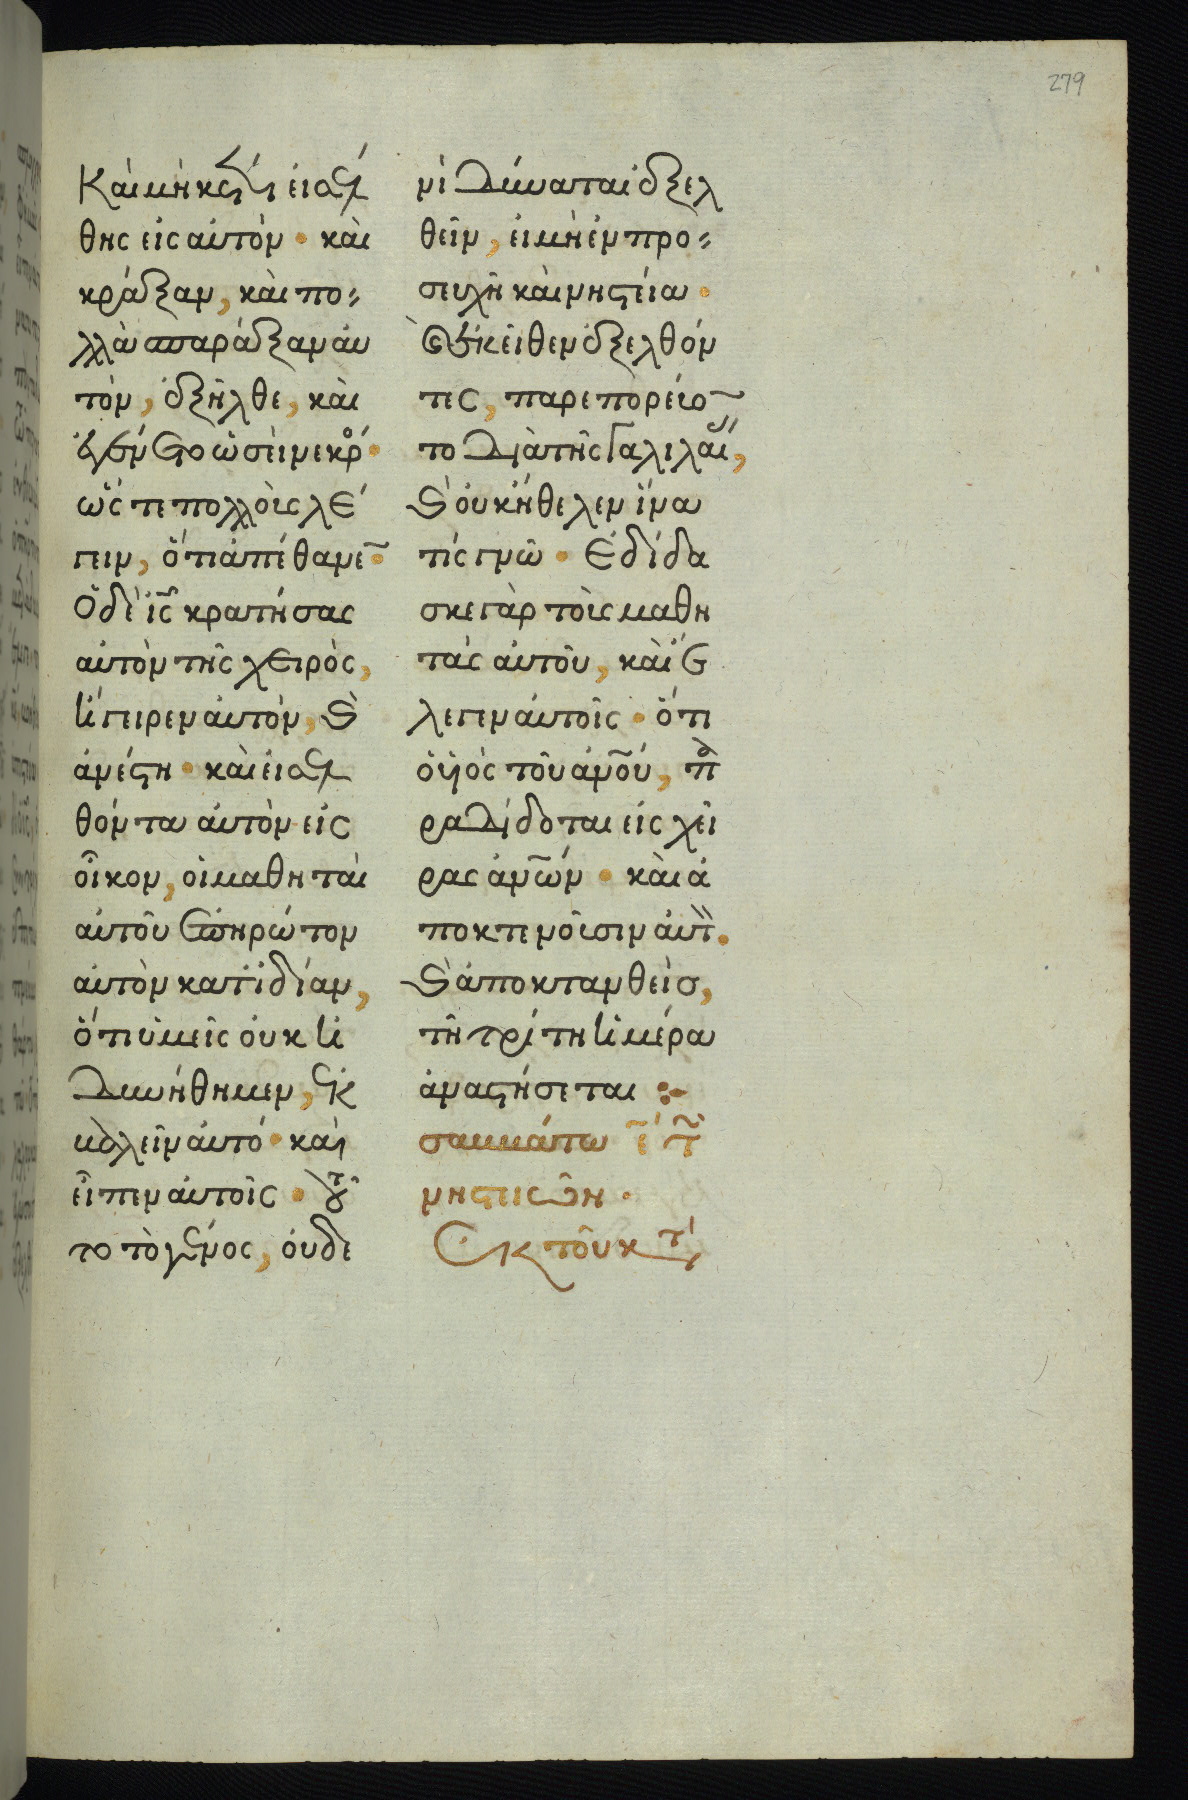 279
Καὶ μηκέτι εἰσέλ
θης εἰς αὐτόν · καὶ
κράξαν, καὶ πο
λλὰ σπαράξαν αὐ
τόν, ἐξῆλθε, καὶ
ἐγένετο ὡσεὶ νεκρό ·
ὥς τε πολλοὺς λέ
γειν, ὅτι ἀπέθανε͂ ·
Ὁ δὲ ἰς̅ κρατήσας
αὐτὸν τῆς χειρὸς,
ἤγειρεν αὐτόν, κ̀
ἀνέστη · καὶ εἰσελ
θόντα αὐτὸν εἰς
οἶκον, οἱ μαθηταὶ
αὐτοῦ ἐπηρώτον
αὐτὸν κατϊδίαν,
ὅτι ὑμεῖς οὐκ ἠ
δυνήθημεν, ἐκ
βαλεῖν αὐτό · καὶ
εἶπεν αὐτοῖς · τοῦ
το τὸ γένος, οὐδε
νὶ δύναται ἐξελ
θεῖν, εἰ μὴ ἐν προ
σευχῆ καὶ νηστεία ·
Ἐκεῖθεν ἐξελθόν
τες, παρεπορεύο͂
το διὰ τῆς Γαλιλαί,
κ̀ οὐκ ἤθελεν ἵνα
τίς γνῶ · Ἐδίδα
σκε γὰρ τοὺς μαθη
τάς αὐτοῦ, καὶ ἔ
λεγεν αὐτοῖς · ὅτι
ὁ ὑιὸς τοῦ ἀν̅ου, πα
ραδίδοται εἰς χεῖ
ρας ἀν̅ων · καὶ ἀ
ποκτενοῦσιν αὐτ ·
κ̀ ἀποκτανθεὶσ,
τῆ τρίτη ἡμέρα
ἀναστήσεται :·
σαββάτω ε̅ τ͂
νηστειῶν ·
Ἐκ τοῦ κτ